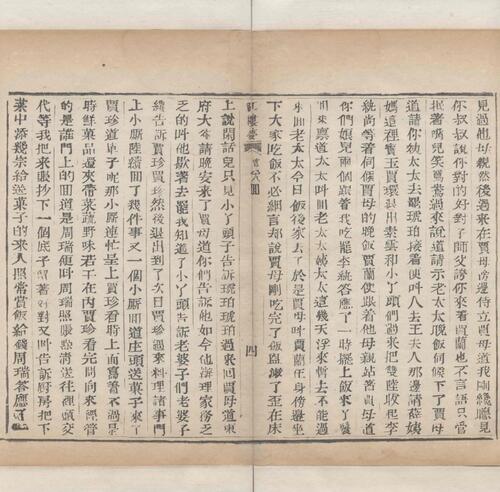 見過祖母親然後過來在賈母旁邊侍立賈母道我剛纔聽見
你叔叔說你對的好對子師父誇你來着賈蘭也不言語只管
抿着嘴兒笑鴛鴦過來說道請示老太太晚飯伺候下了賈母
道請你姨太太去罷琥珀接着便叫人去王夫人那邊請薛姨
媽這裡寶玉賈環退出素雲和小丫頭們過來把雙陸收起李
紈尚等着伺候賈母的晚飯賈蘭便跟着他母親站着賈母道
你們娘兒兩個跟着我吃罷李紈答應了一時擺上飯來丫鬟
回來稟道太太叫回老太太姨太太這幾天浮來暫去不能過
來回老太太今日飯後家去了於是賈母叫賈蘭在身傍邊坐
下大家吃飯不必細言却說賈母剛吃完了飯盥漱了歪在床
紅樓夢 第八八回 四
上說閒話兒只見小丫頭子告訴琥珀琥珀過來回賈母道東
府大爺請晚安來了賈母道你們告訴他如今他辦理家務乏
乏的叫他歇着去罷我知道了小丫頭告訴老婆子們老婆子
纔告訴賈珍賈珍然後退出到了次日賈珍過來料理諸事門
上小厮陸續回了幾件事又一個小厮回道庄頭送菓子來了
賈珍道單子呢那小厮連忙呈上賈珍看時上面寫着不過是
時鮮菓品還夾帶菜蔬野味若干在內賈珍看完問向來經管
的是誰門上的回道是周瑞便叫周瑞照賬點清送往裡頭交
代等我把來賬抄下一個底子留着好對又叫告訴厨房把下
菜中添幾宗給送菓子的來人照常賞飯給錢周瑞答應了